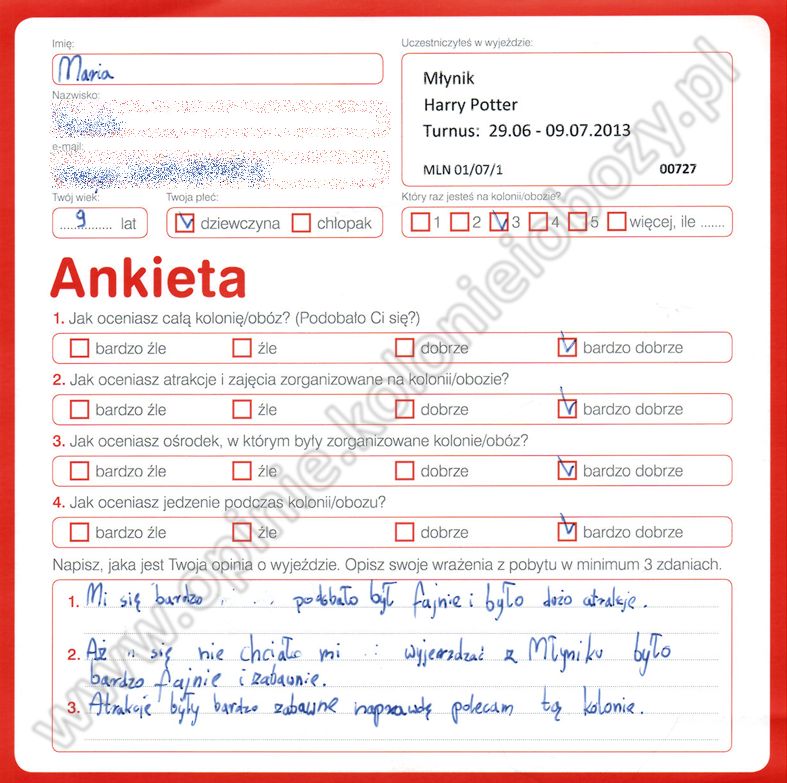 Imię:
Maria
Uczestniczyłeś w wyjeździe:
Młynik
Harry Potter
Turnus: 29.06 - 09.07.2013
MLN 01/07/1 00727
Nazwisko:
e-mail:
Twój wiek:
9 lat
Twoja płeć:
dziewczyna chłopak
Który raz jesteś na kolonii/obozie?
1 2 3 4 5 więcej, ile .......
Ankieta
1. Jak oceniasz całą kolonię/obóz? (Podobało Ci się?)
bardzo źle źle dobrze bardzo dobrze
2. Jak oceniasz atrakcje i zajęcia zorganizowane na kolonii/obozie?
bardzo źle źle dobrze bardzo dobrze
3. Jak oceniasz ośrodek, w którym były zorganizowane kolonie/obóz?
bardzo źle źle dobrze bardzo dobrze
4. Jak oceniasz jedzenie podczas kolonii/obozu?
bardzo źle źle dobrze bardzo dobrze
Napisz, jaka jest Twoja opinia o wyjeździe. Opisz swoje wrażenia z pobytu w minimum 3 zdaniach.
1. Mi się bardzo podobało był fajnie i było dożo atrakcje.
2. Aż się nie chciało mi wyjerzdzać z Młyniku było
bardzo fajnie i zabawnie.
3. Atrakcje były bardzo zabawne naprawdę polecam tą kolonie.
www.opinie.kolonieiobozy.pl